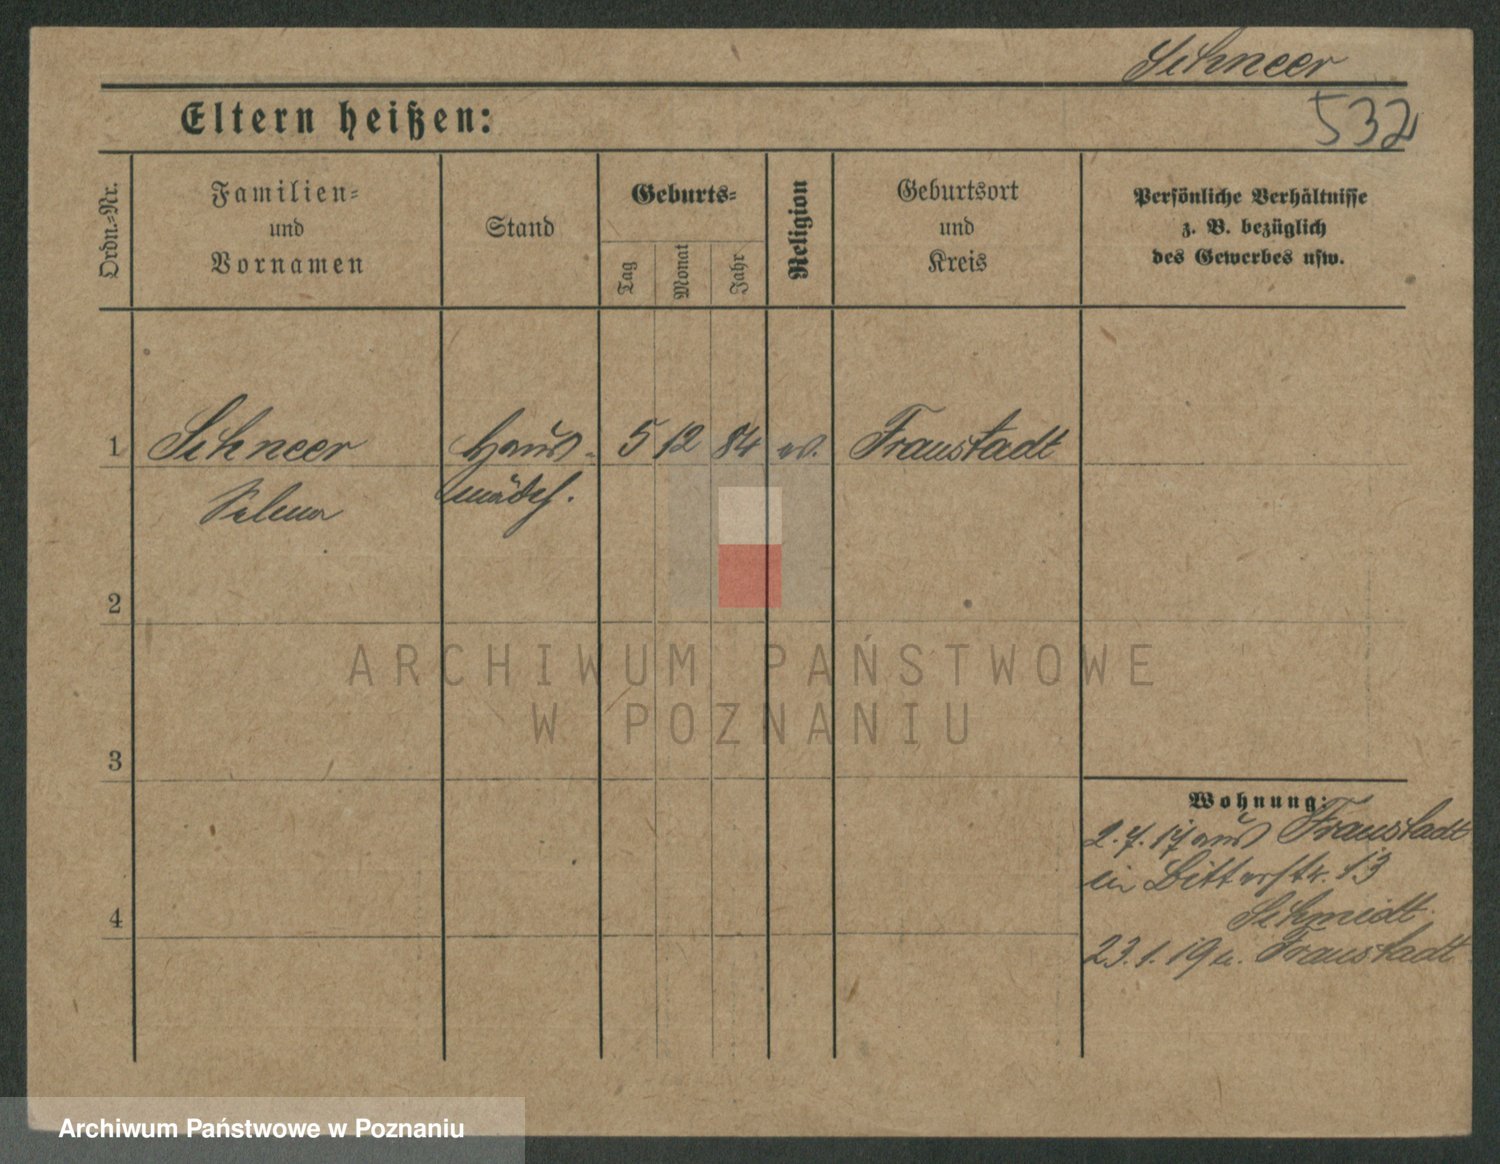 Schneer
532
Eltern heißen:
Ordn.-Nr.
Familien-
und
Vornamen
Stand
Geburts-
Tag
Monat
Jahr
Religion
Geburtsort
und
Kreis
Persönliche Verhältnisse
z. B. bezüglich
des Gewerbes usw.
1
Schneer
Haus-
5
12
84
ev.
Fraustadt
Selma
mädch.
2
ARCHIWUM PAŃSTWOWE
W POZNANIU
3
Wohnung:
2. 7. 17 aus Fraustadt
in Bitterstr. 13
Schmidt
4
23. 1. 19 n. Fraustadt
Archiwum Państwowe w Poznaniu